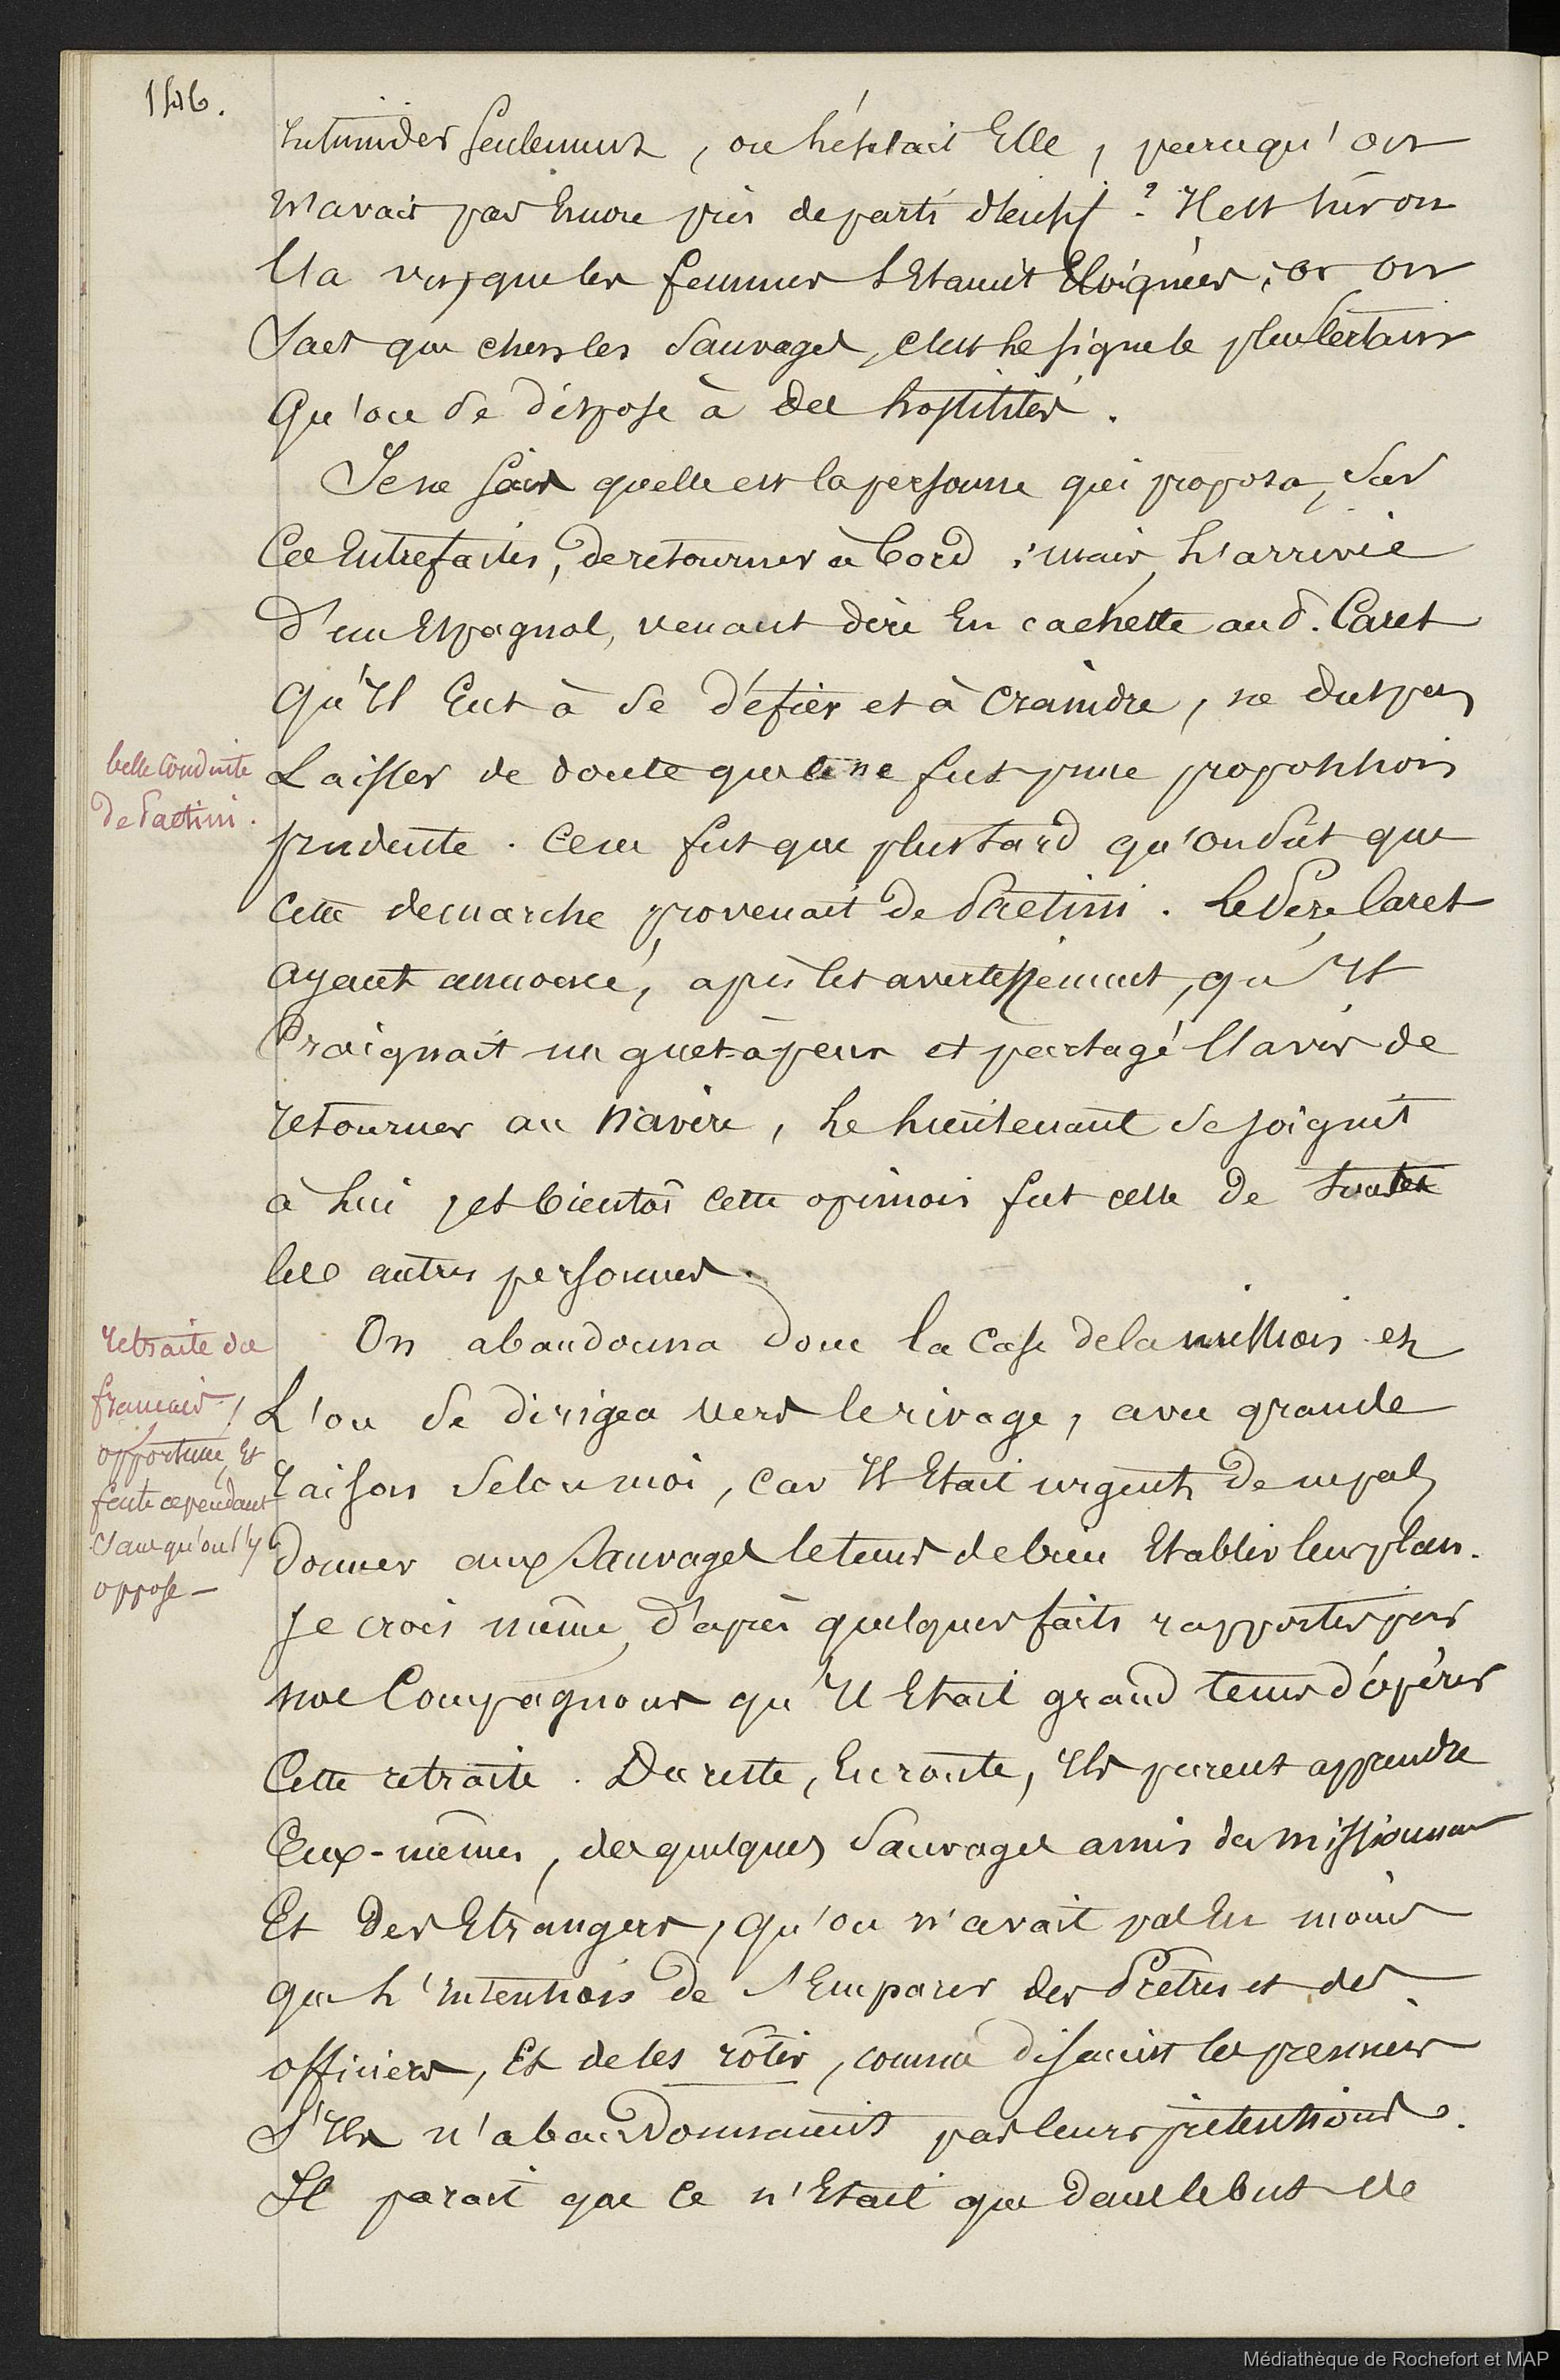 146.
intimider seulement, ou hésitait Elle, parcequ'on
n'avait pas Encore pris de parti décisif ? Il est sûr on
l'a vu, que les femmes s'Etaient Eloignées ; or on
sait que chez les Sauvages, c'est le signe le plus Certain
Qu'on se dispose à des hostilités.
Je ne sais quelle est la personne qui proposa, sur
Ces Entrefaites, de retourner à bord ; mais, l'arrivée
D'un Espagnol, venant dire En cachette au P. Caret
Qu'Il Eut à se défier et à craindre, ne dut pas
Laisser de doute que ce ne fut une proposition
prudente. Ce ne fut que plus tard qu'on sut que
Cette demarche provenait de Paetini. Le Père Caret
ayant annoncé, après cet avertissement, qu'Il
Craignait un guet-à-pens et partagé l'avis de
retourner au Navire, le lieutenant se joignit
à lui, et bientôt cette opinion fut celle de toutes
les autres personnes.
belle Conduite
de Paetini.
On abandonna donc la Case de la mission et
L'on se dirigea vers le rivage, avec grande
raison selon moi, car Il Etait urgent de ne pas
donner aux Sauvages le tems de bien Etablir leur plan.
Je crois même, d'après quelques faits rapportés par
nos Compagnons qu'Il Etait grand tems d'opérer
Cette retraite. Du reste, En route, Ils purent apprendre
Eux-mêmes, de quelques Sauvages amis des missionnaires
Et Des Etrangers, qu'on n'avait pas Eu moins
que l'intention de s'Emparer des Prêtres et des
officiers, Et de les rôtir, comme disaient les premiers
S'Ils n'abandonnaient pas leurs prétentions.
Il parait que ce n'Etait que dans le but de
retraite des
francais,
opportune, Et
faite cependant
sans qu'on s'y
oppose —
Médiathèque de Rochefort et MAP